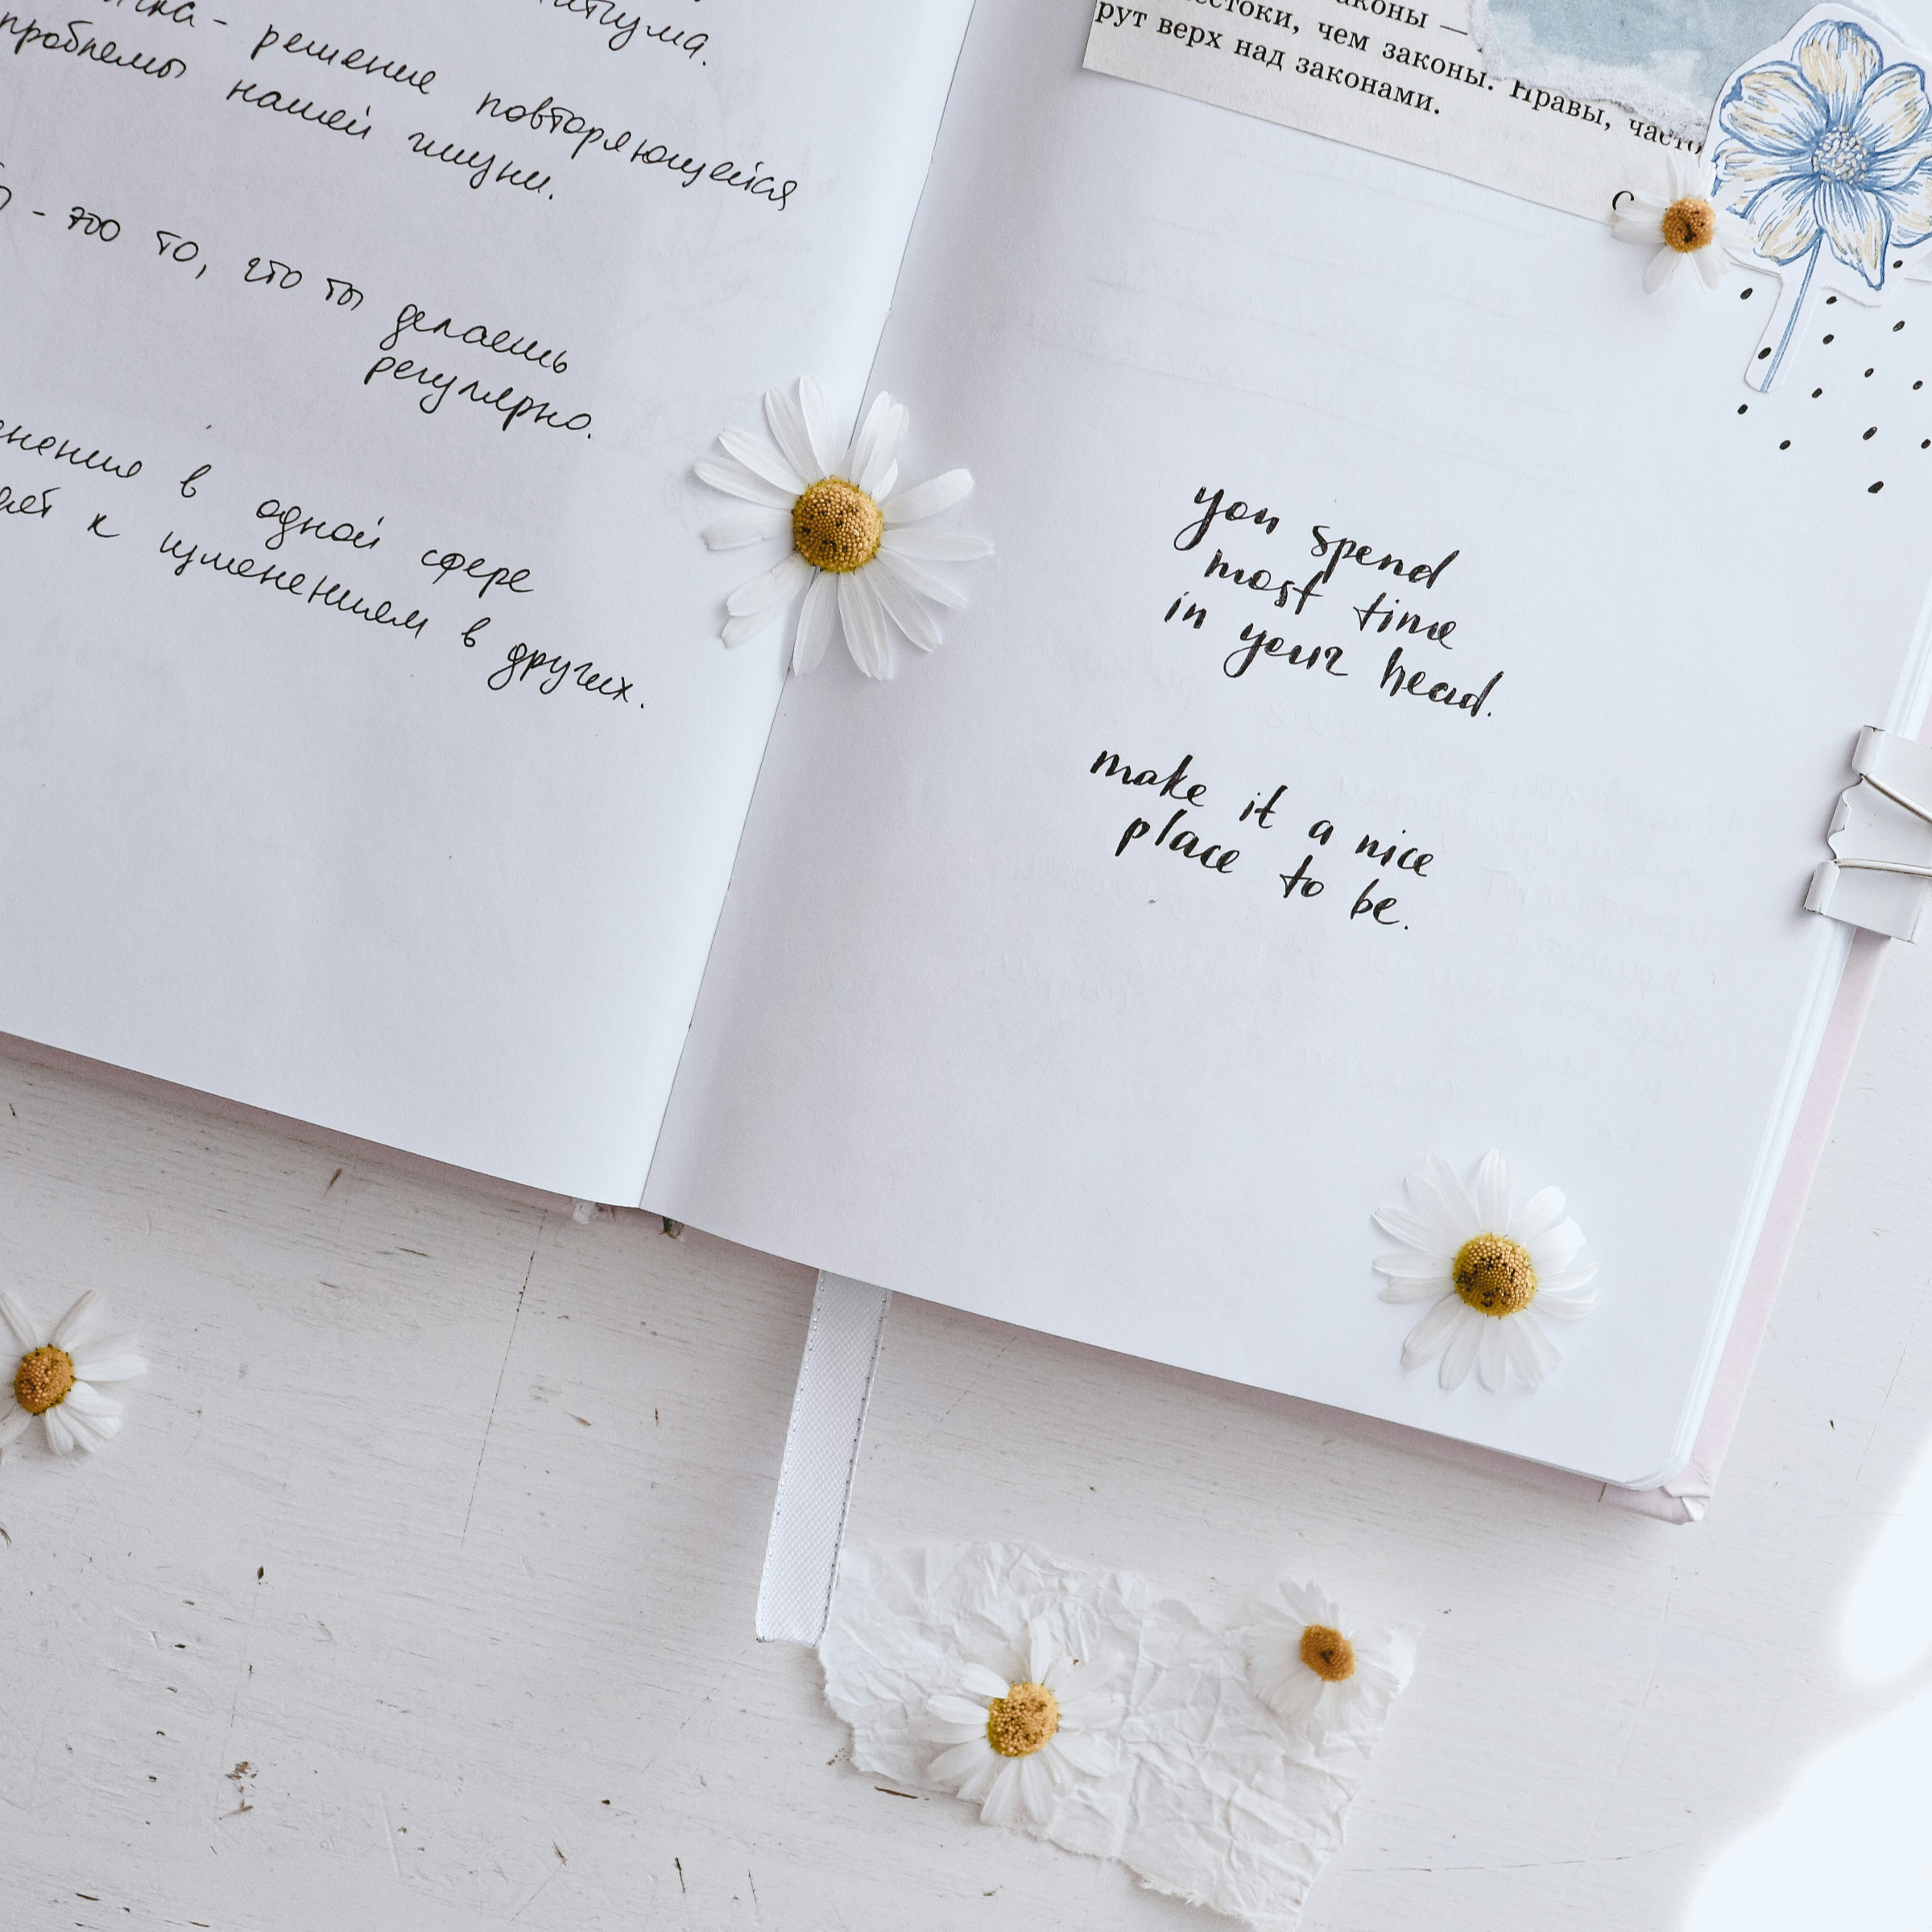 решение повторяющейся
проблемы нашей жизни.
- это то, что ты делаешь
регулярно.
в одной сфере
к изменениям в других.
законы —
чем законы. Нравы, часто
рут верх над законами.
you spend
most time
in your head.
make it a nice
place to be.